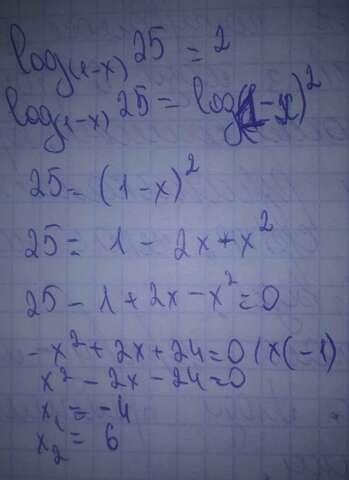 log₍₁₋ₓ₎ 25 = 2
log₍₁₋ₓ₎ 25 = log(1-x)²
25 = (1-x)²
25 = 1 - 2x + x²
25 - 1 + 2x - x² = 0
-x² + 2x + 24 = 0 (x(-1)
x² - 2x - 24 = 0
x₁ = -4
x₂ = 6